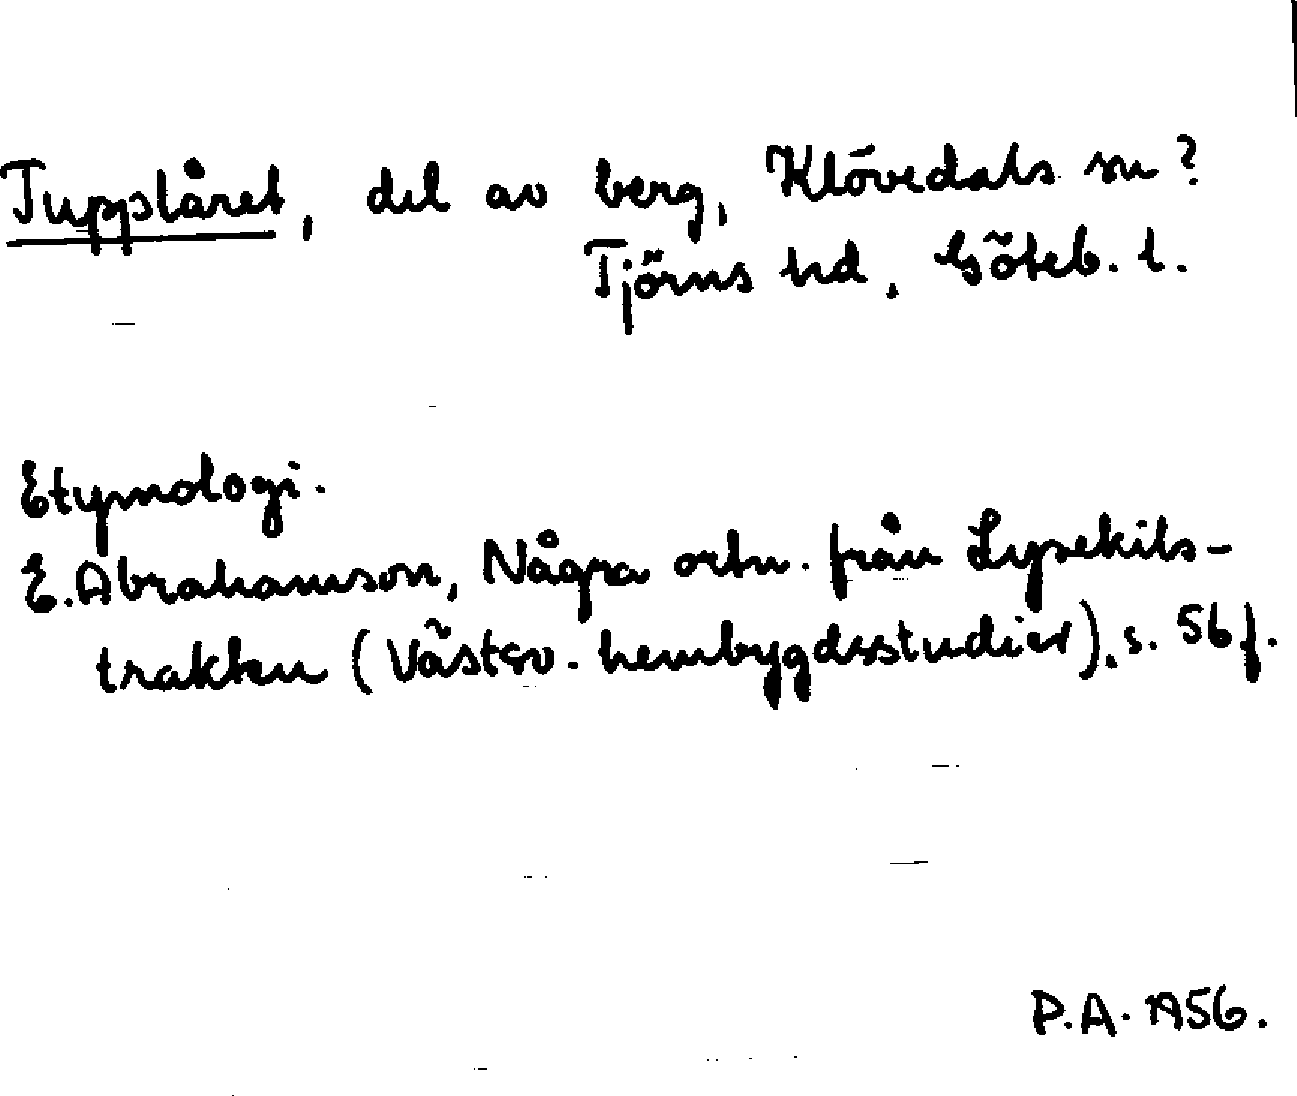 Tuppslåret, del av berg, Klövedals sn?
Tjörns hd, Göteb. l.
Etymologi.
E. Abrahamson, Några ortn. från Lysekils-
trakten (Västsv. hembygdsstudier), s. 56 f.
P.A. 1956.